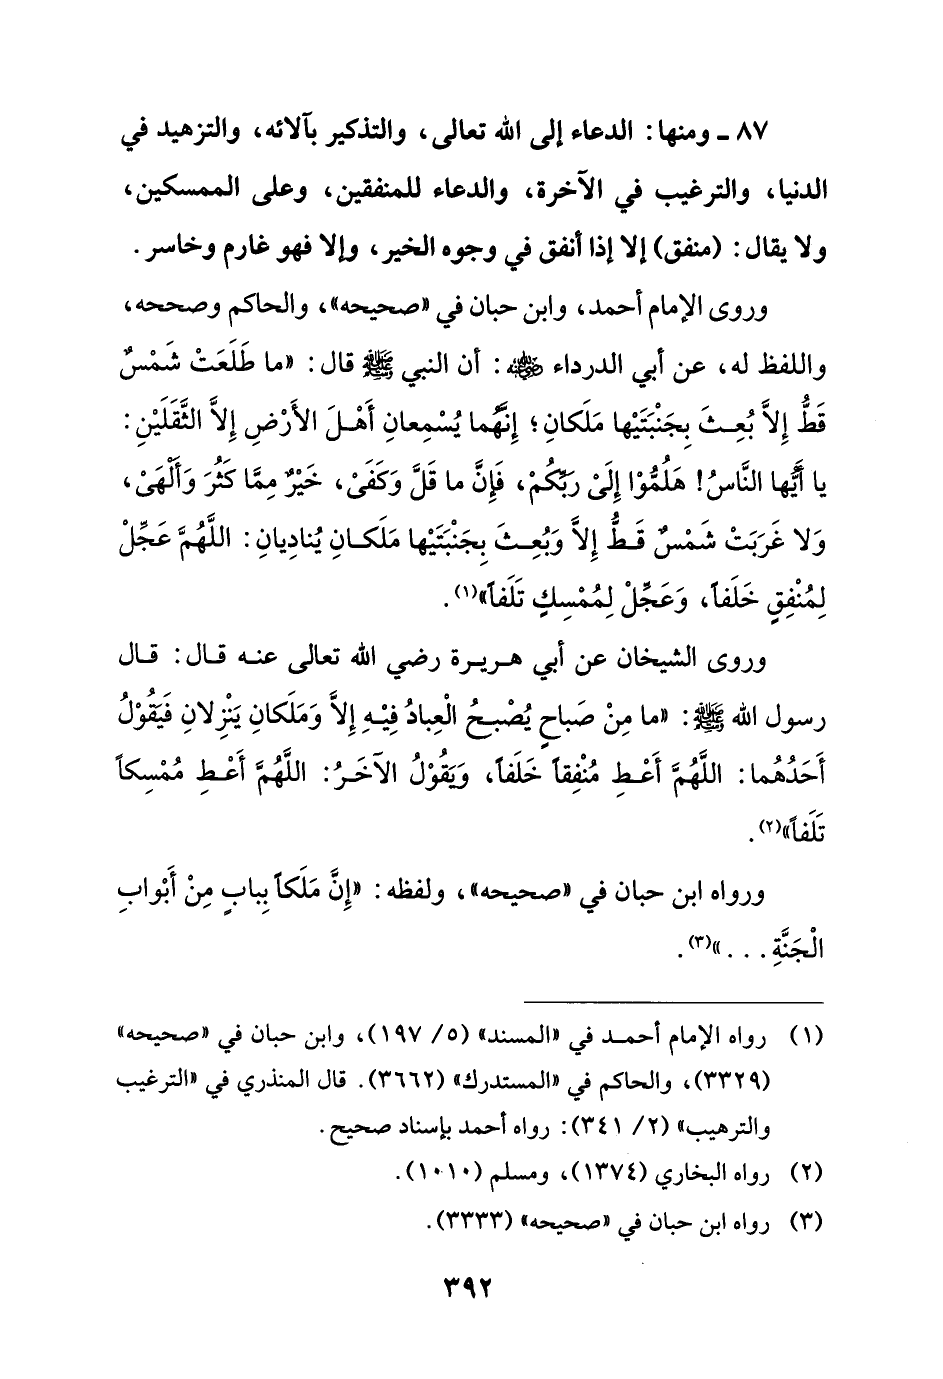 ٨٧ ـ ومنها: الدعاء إلى الله تعالى، والتذكير بآلائه، والتزهيد في
الدنيا، والترغيب في الآخرة، والدعاء للمنفقين، وعلى الممسكين،
ولا يقال: (منفق) إلا إذا أنفق في وجوه الخير، وإلا فهو غارم وخاسر.
وروى الإمام أحمد، وابن حبان في «صحيحه»، والحاكم وصححه،
واللفظ له، عن أبي الدرداء رضي الله عنه: أن النبي ﷺ قال: «ما طَلَعَتْ شَمْسٌ
قَطُّ إِلاَّ بُعِـثَ بِجَنْبَتَيْها مَلَكانِ؛ إِنَّهُما يُسْمِعانِ أَهْـلَ الأَرْضِ إِلاَّ الثَّقَلَيْنِ:
يا أَيُّها النَّاسُ! هَلُمُّوْا إِلَىْ رَبِّكُمْ، فَإِنَّ ما قَلَّ وَكَفَىْ، خَيْرٌ مِمَّا كَثُرَ وَأَلْهَىْ،
وَلا غَرَبَتْ شَمْسٌ قَـطُّ إِلاَّ وَبُعِـثَ بِجَنْبَتَيْها مَلَكـانِ يُنادِيانِ: اللَّهُمَّ عَجِّلْ
لِمُنْفِقٍ خَلَفاً، وَعَجِّلْ لِمُمْسِكٍ تَلَفاً»(١).
وروى الشيخان عن أبي هـريـرة رضي الله تعالى عنـه قـال: قـال
رسول الله ﷺ: «ما مِنْ صَباحٍ يُصْبِـحُ الْعِبادُ فِيْـهِ إِلاَّ وَمَلَكانِ يَنْزِلانِ فَيَقُوْلُ
أَحَدُهُما: اللَّهُمَّ أَعْـطِ مُنْفِقاً خَلَفاً، وَيَقُوْلُ الآخَـرُ: اللَّهُمَّ أَعْـطِ مُمْسِكاً
تَلَفاً»(٢).
ورواه ابن حبان في «صحيحه»، ولفظه: «إِنَّ مَلَكاً بِبابٍ مِنْ أَبْوابِ
الْجَنَّةِ...»(٣).
(١) رواه الإمام أحمـد في «المسند» (٥/ ١٩٧)، وابن حبان في «صحيحه»
(٣٣٢٩)، والحاكم في «المستدرك» (٣٦٦٢). قال المنذري في «الترغيب
والترهيب» (٢/ ٣٤١): رواه أحمد بإسناد صحيح.
(٢) رواه البخاري (١٣٧٤)، ومسلم (١٠١٠).
(٣) رواه ابن حبان في «صحيحه» (٣٣٣٣).
٣٩٢